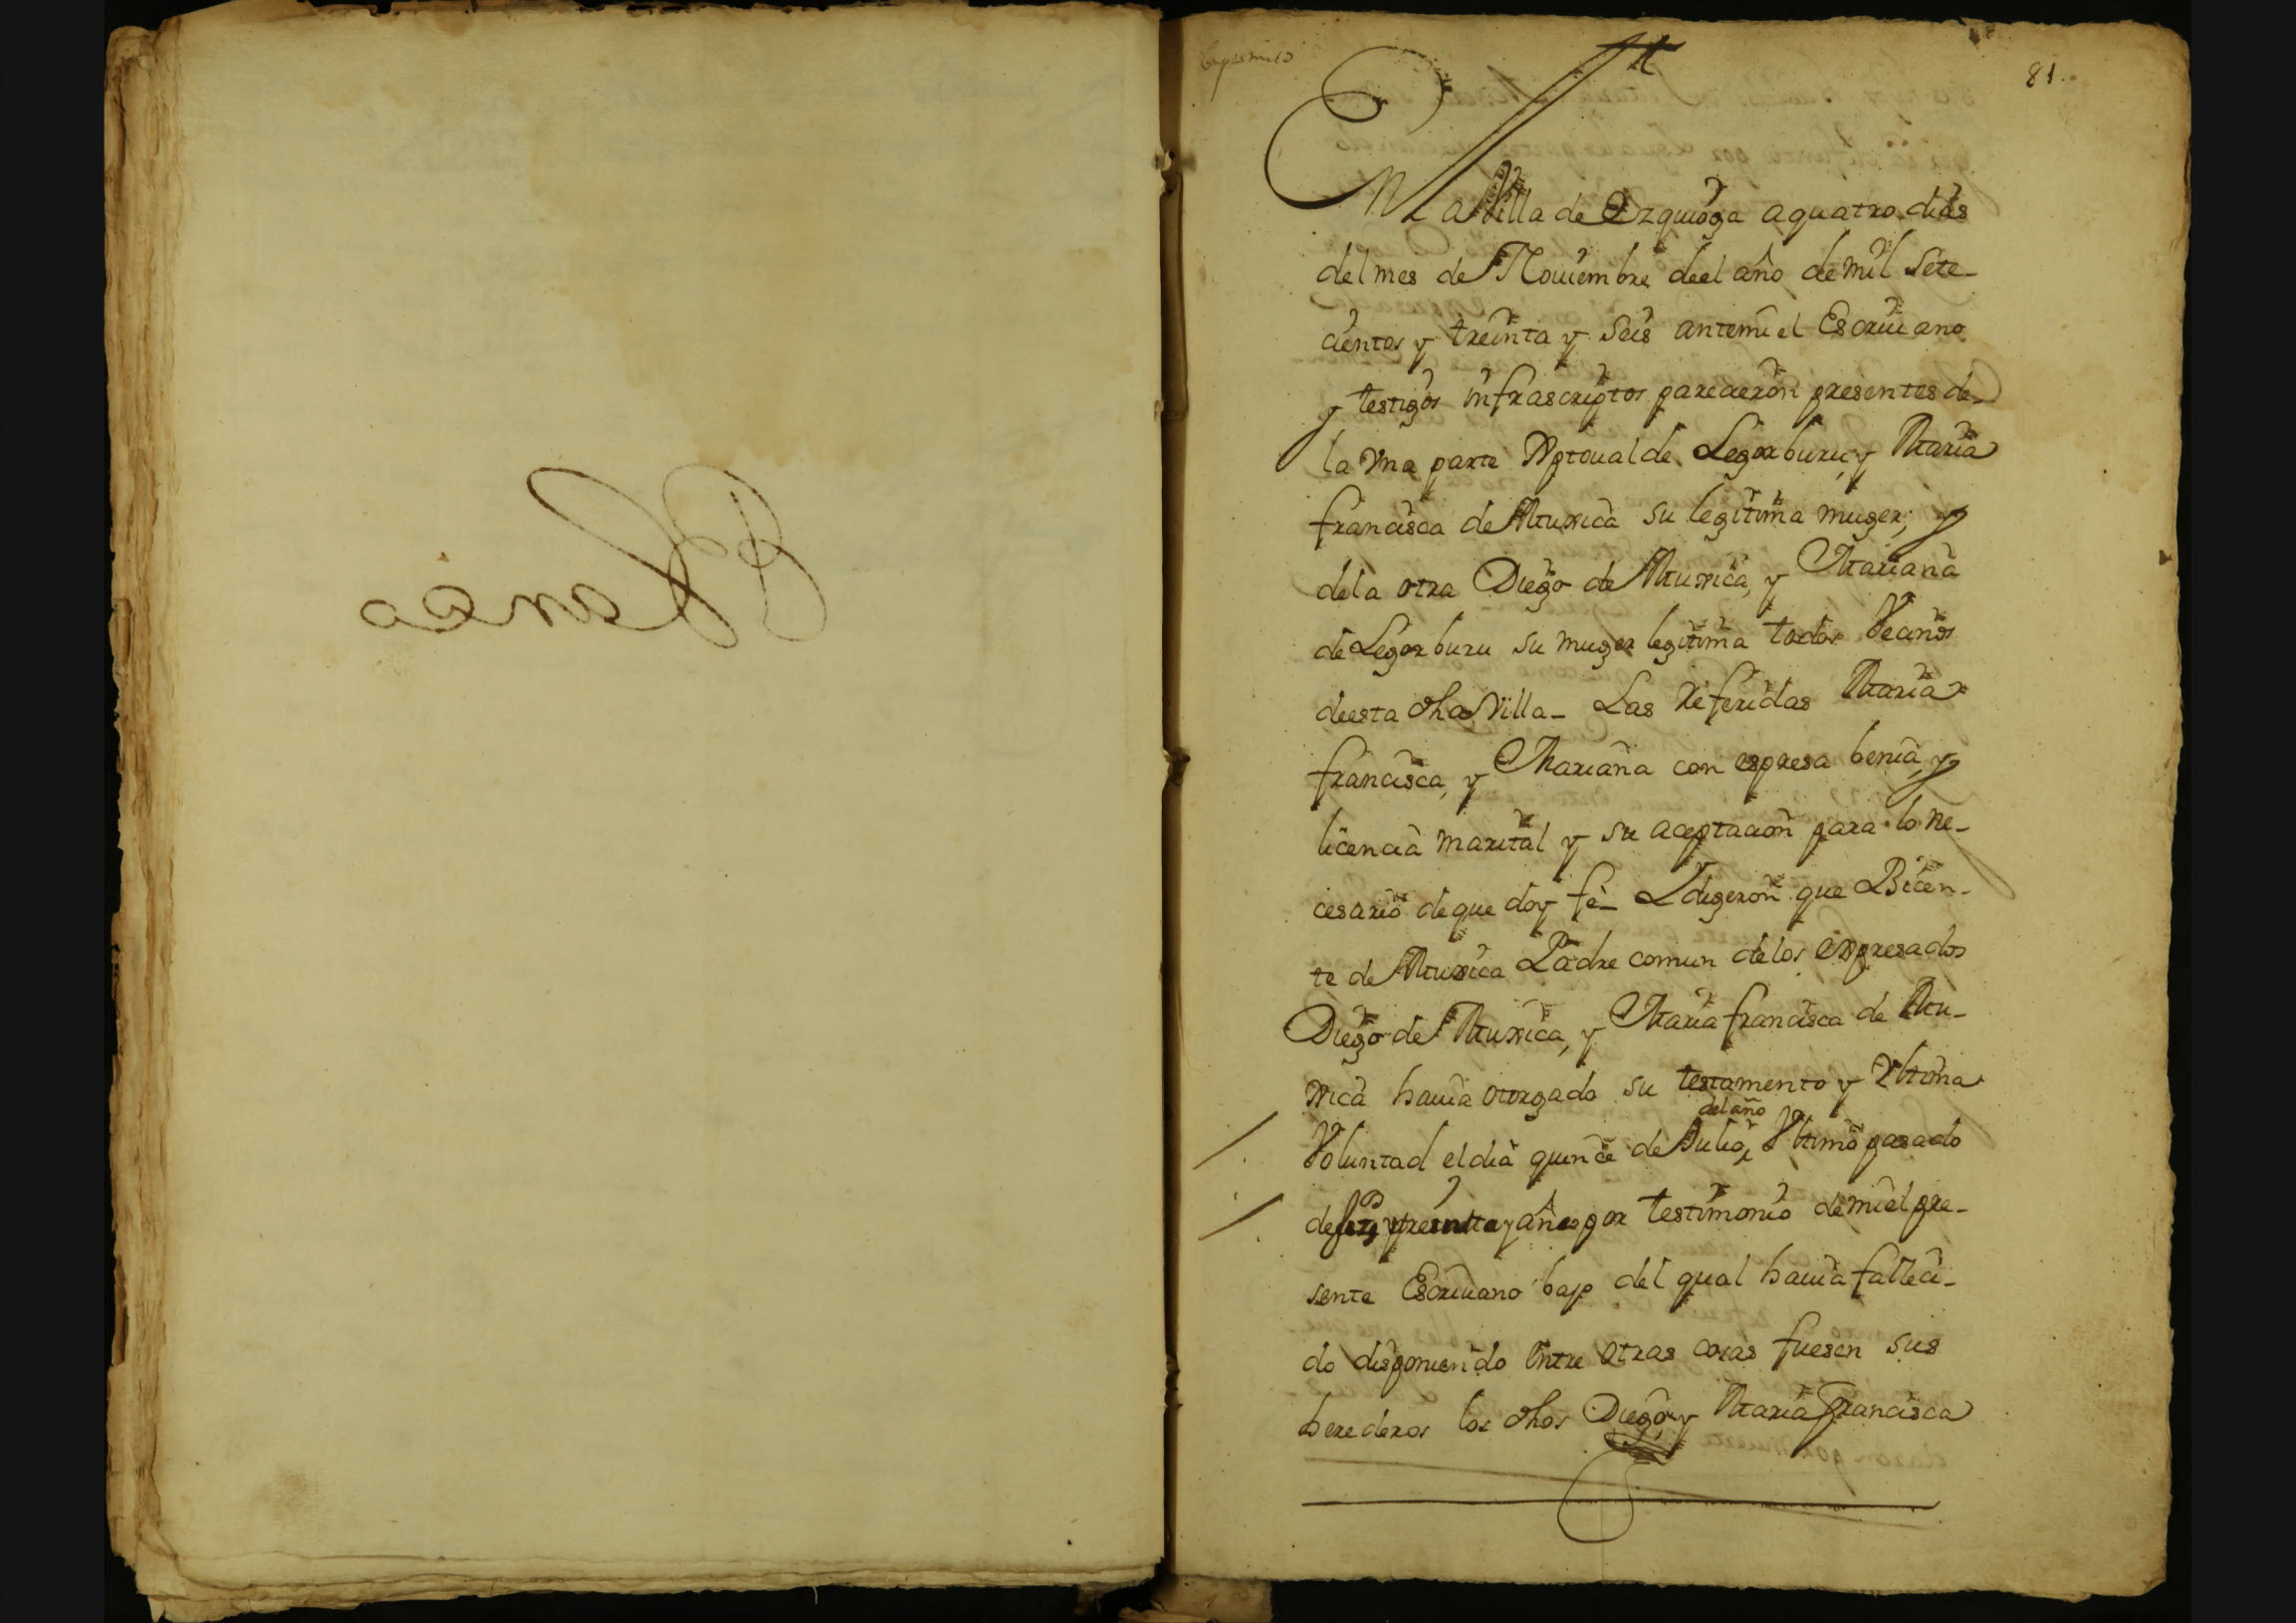 81.
En la Villa de Ezquioga a quatro dias
del mes de Nouiembre de el año de mil Sete-
cientos y treinta y Seis ante mi el Escriuano
y testigos infrascriptos parecieron presentes de-
la Vna parte Xptoual de Legorburu, y Maria
francisca de Muxica su legitima muger; y
de la otra Diego de Muxica, y Mariana
de Legorburu su muger legitima todos Vecinos
de esta dha Villa- Las Referidas Maria
francisca, y Mariana con expresa benia, y
licencia marital y su aceptacion para lo ne-
cesario de que doy fè- Y digeron que Bicen-
te de Muxica Padre comun de los expresados
Diego de Muxica, y Maria francisca de Mu-
xica hauia otorgado su testamento y Vltima
del año
Voluntad el dia quince de Julio, Vltimo pasado
de treinta y años por testimonio de mi el pre-
sente Escriuano bajo del qual hauia falleci-
do disponiendo entre otras cosas fuesen sus
herederos los dhos Diego, y Maria Francisca